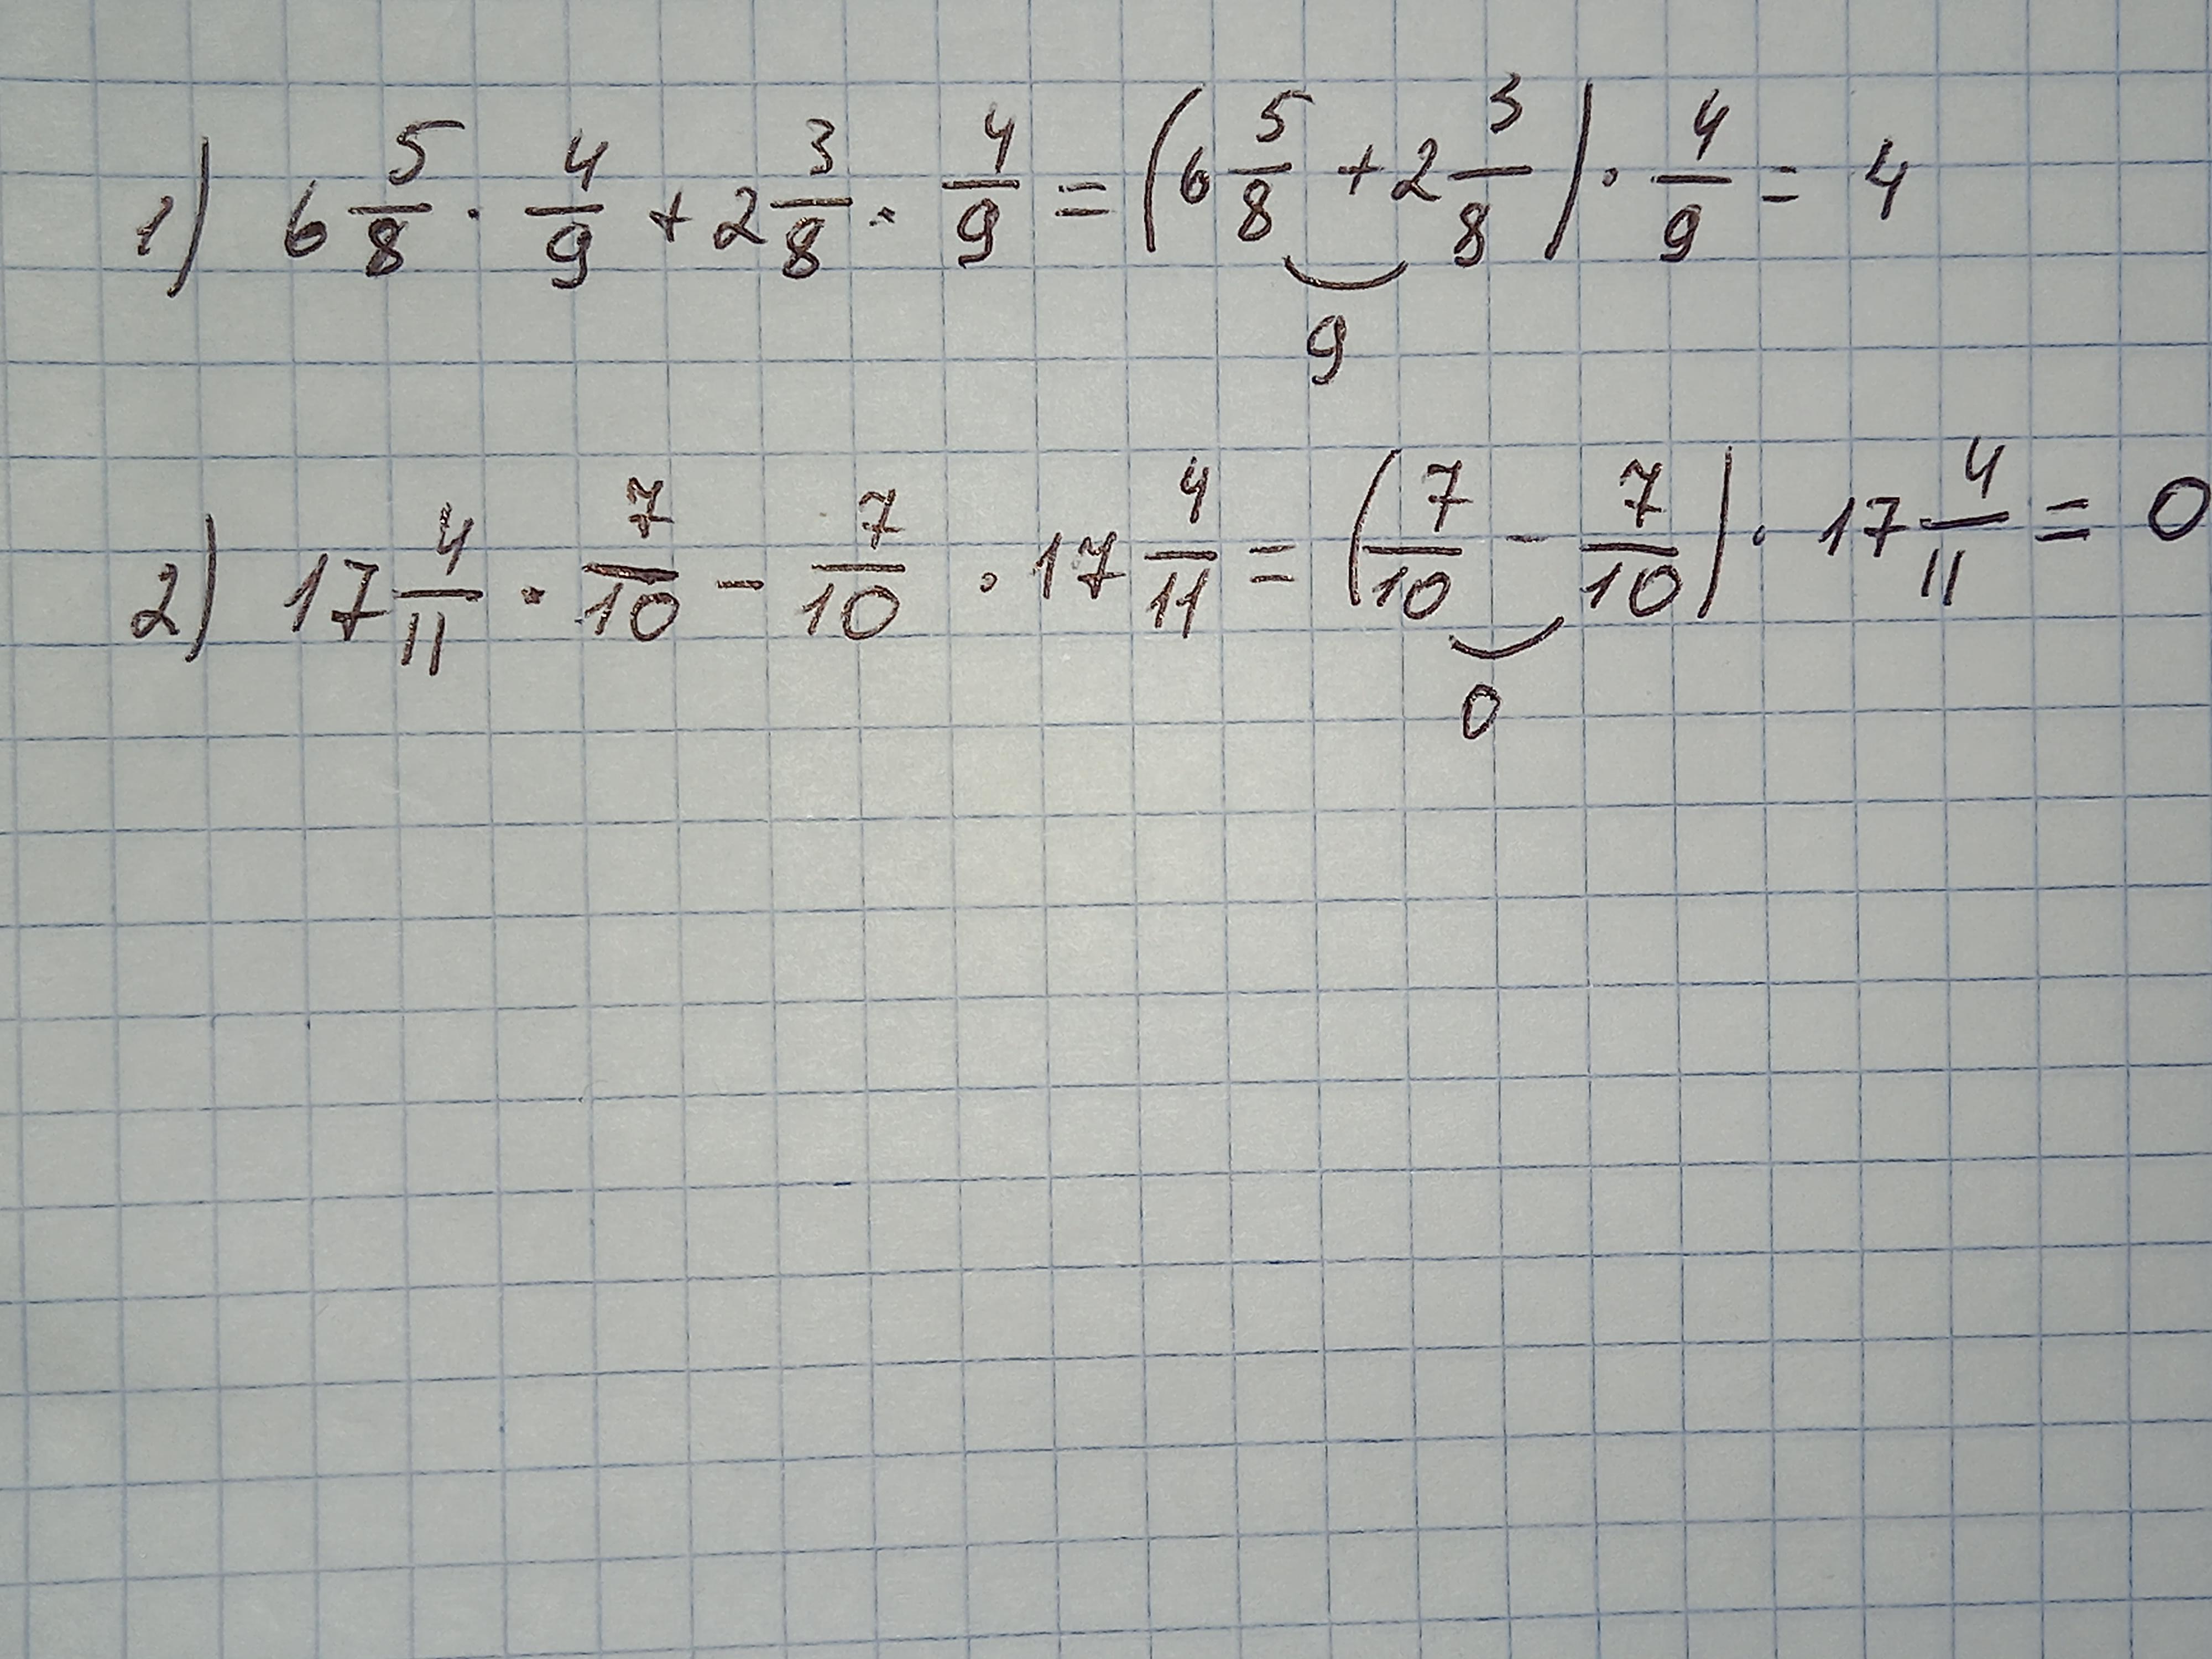 1) 6 5/8 · 4/9 + 2 3/8 · 4/9 = (6 5/8 + 2 3/8) · 4/9 = 4
9
2) 17 4/11 · 7/10 - 7/10 · 17 4/11 = (7/10 - 7/10) · 17 4/11 = 0
0